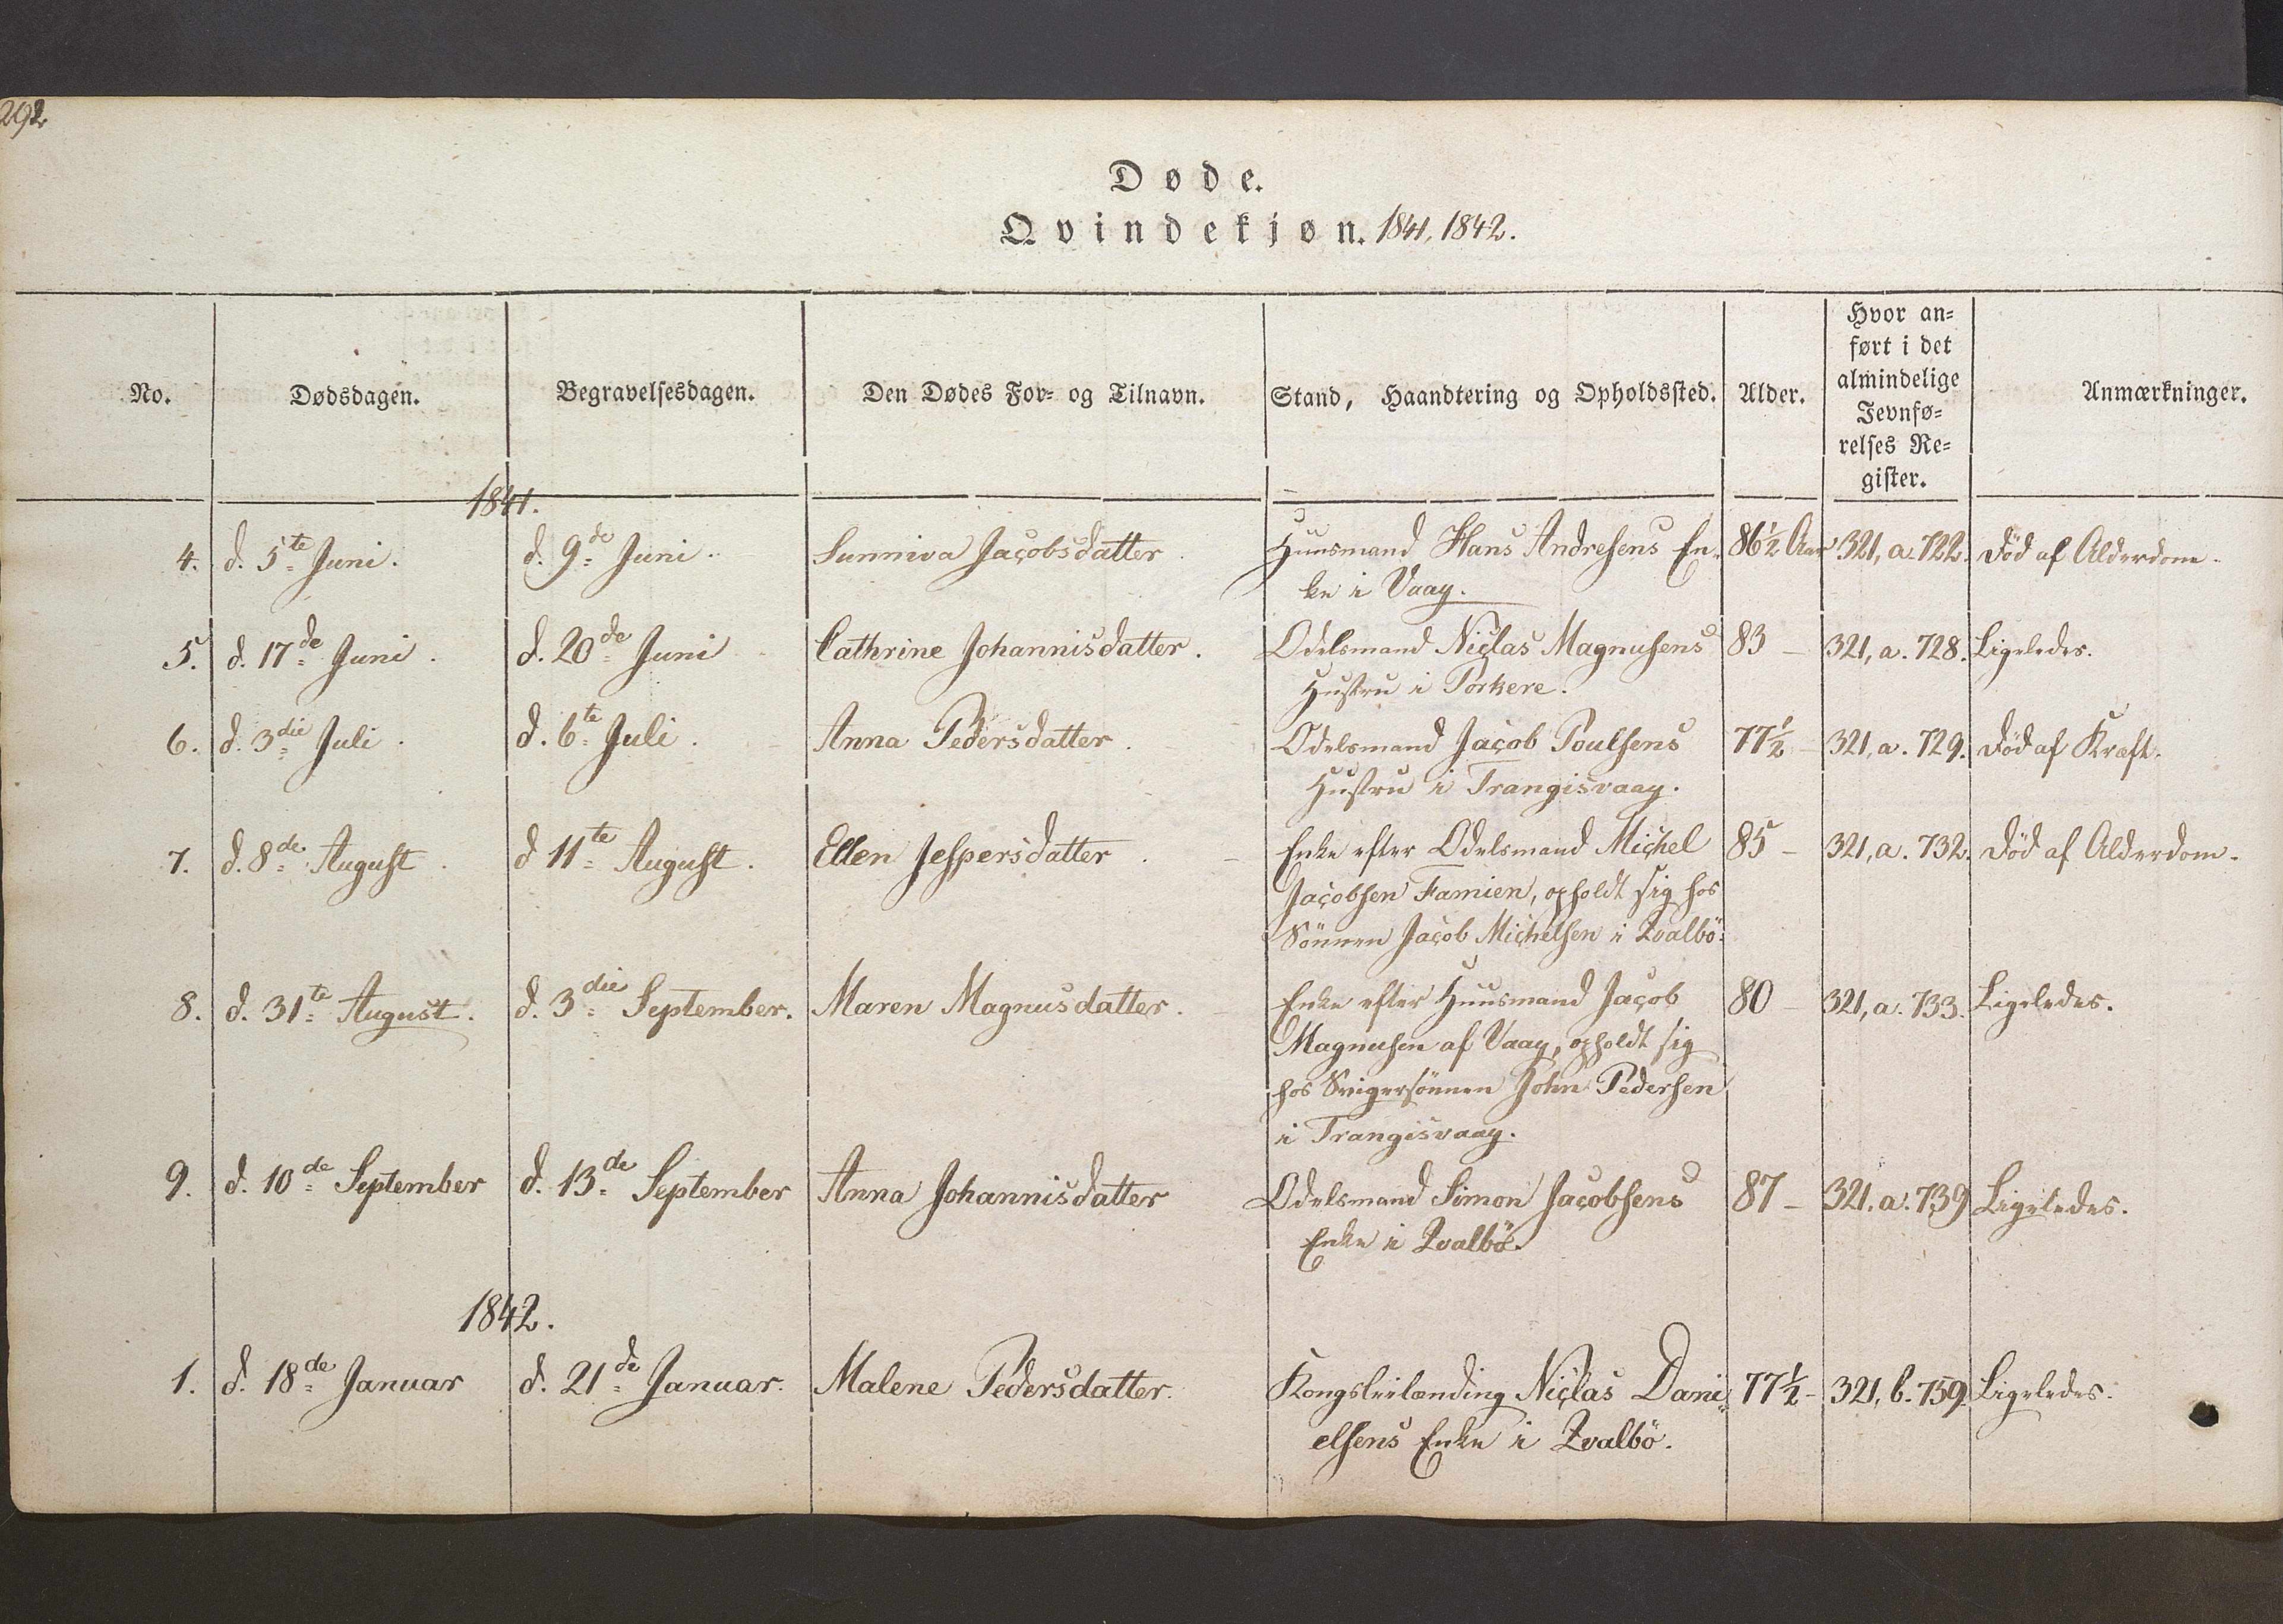 292
Døde.
Qvindekjøn. 1841, 1842.
No.
Dødsdagen.
Begravelsesdagen.
Den Dødes For- og Tilnavn.
Stand, Haandtering og Opholdssted.
Alder.
Hvor an-
ført i det
almindelige
Jevnfø-
relses Re-
gister.
Anmærkninger.
1841.
4. d. 5te Juni. d. 9de Juni. Sunniva Jacobsdatter. Huusmand Hans Andresens En- 86½ Aar 321, a. 722. Død af Alderdom.
ke i Vaag.
5. d. 17de Juni. d. 20de Juni Cathrine Johannisdatter. Odelsmand Niclas Magnusens 83 – 321, a. 728. Ligeledes.
Hustru i Porkere.
6. d. 3die Juli. d. 6te Juli. Anna Pedersdatter. Odelsmand Jacob Poulsens 77½ – 321, a. 729. Død af Kræft.
Hustru i Trangisvaag.
7. d. 8de August. d 11te August. Ellen Jespersdatter. Enke efter Odelsmand Michel 85 – 321, a. 732. Død af Alderdom.
Jacobsen Famien, opholdt sig hos
Sönnen Jacob Michelsen i Qvalbö.
8. d. 31te August. d. 3die September. Maren Magnusdatter. Enke efter Huusmand Jacob 80 – 321, a. 733. Ligeledes.
Magnusen af Vaag, opholdt sig
hos Svigersönnen John Pedersen
i Trangisvaag.
9. d. 10de September d. 13de September Anna Johannisdatter Odelsmand Simon Jacobsens 87 – 321. a. 739 Ligeledes.
Enke i Qvalbö.
1842.
1. d. 18de Januar d. 21de Januar. Malene Pedersdatter. Kongsleilænding Niclas Dani- 77½ – 321, b. 759. Ligeledes.
elsens Enke i Qvalbö.